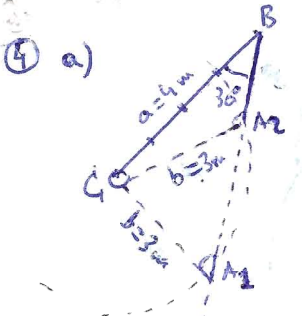 ④ a)
B
a=4m
30°
A2
b=3m
C
b=3m
A1